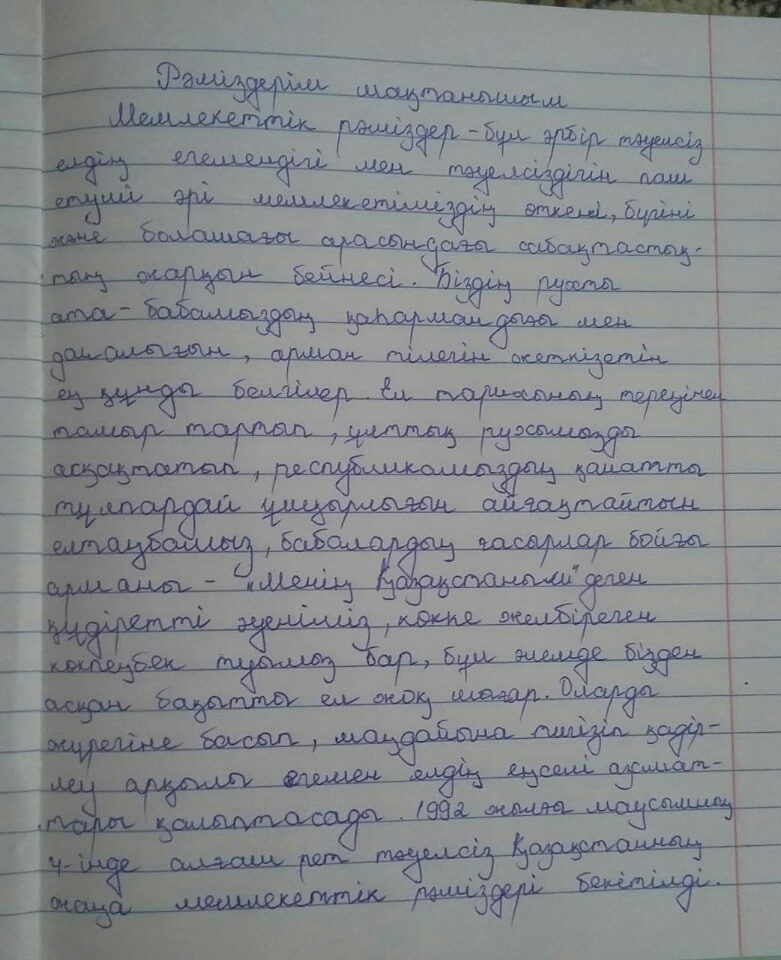 Рәміздерім мақтанышым
Мемлекеттік рәміздер - бұл әрбір тәуелсіз
елдің егемендігі мен тәуелсіздігін паш
етуші әрі мемлекетіміздің өткені, бүгіні
және болашағы арасындағы сабақтастық-
тың жарқын бейнесі. Біздің рухты
ата - бабамыздың қаһармандығы мен
даналығын, арман тілегін жеткізетін
ең құнды белгілер. Ел тарихының тереңінен
тамыр тартып, ұлттық рухымызды
асқақтатып, республикамыздың қанатты
тұлпардай ұшқырлығын айғақтайтын
елтаңбамыз, бабалардың ғасырлар бойғы
арманы - "Менің Қазақстаным" деген
құдіретті әуеніміз, көкке желбіреген
көкпеңбек туымыз бар, бұл әлемде бізден
асқан бақытты ел жоқ шығар. Оларды
жүрегіне басып, маңдайына тигізіп қадір-
леу арқылы егемен елдің еңселі азамат-
тары қалыптасады. 1992 жылғы маусымның
4-інде алғаш рет тәуелсіз Қазақстанның
жаңа мемлекеттік рәміздері бекітілді.